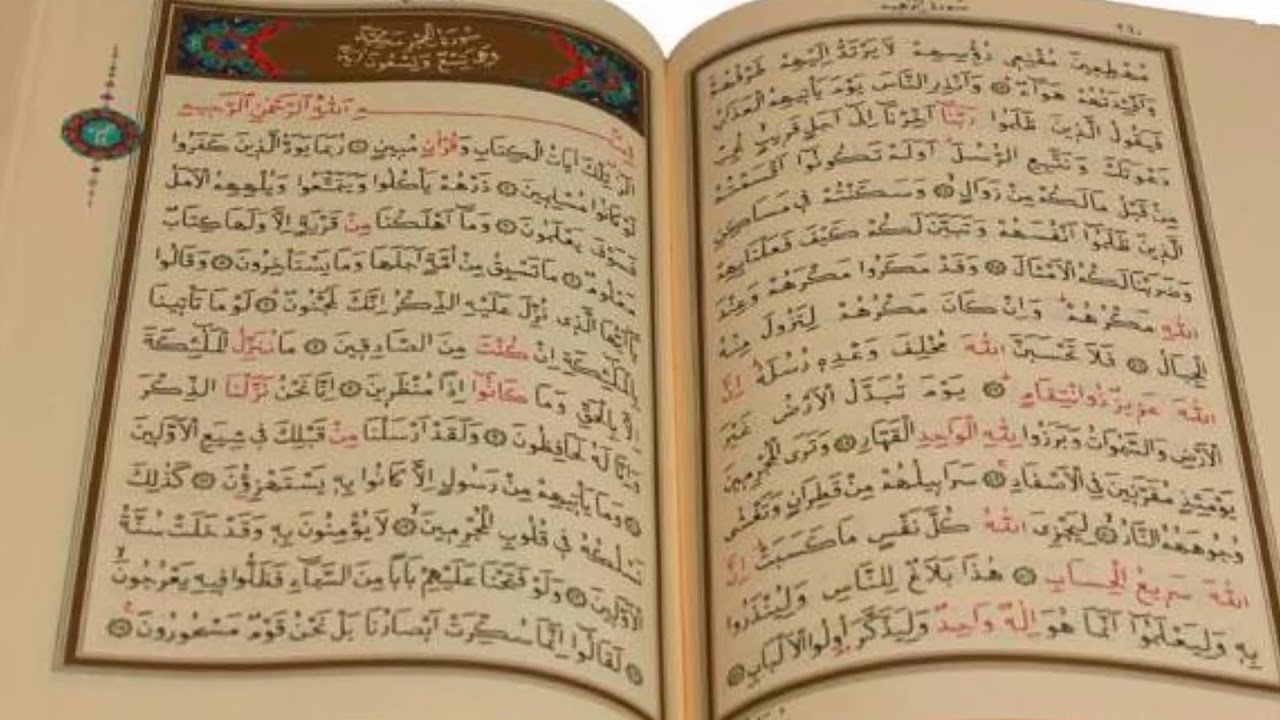 سُورَةُ اِبْرٰهِيمَ
٢٦٠
مُهْطِعِينَ مُقْنِعِى رُؤُسِهِمْ لَا يَرْتَدُّ اِلَيْهِمْ طَرْفُهُمْ
وَاَفْـِٔدَتُهُمْ هَوَآءٌ وَاَنْذِرِ النَّاسَ يَوْمَ يَأْتِيهِمُ الْعَذَابُ
فَيَقُولُ الَّذِينَ ظَلَمُوا رَبَّنَآ اَخِّرْنَآ اِلٰٓى اَجَلٍ قَرِيبٍ نُجِبْ
دَعْوَتَكَ وَنَتَّبِعِ الرُّسُلَ اَوَلَمْ تَكُونُٓوا اَقْسَمْتُمْ
مِنْ قَبْلُ مَالَكُمْ مِنْ زَوَالٍ وَسَكَنْتُمْ فِى مَسَاكِنِ
الَّذِينَ ظَلَمُٓوا اَنْفُسَهُمْ وَتَبَيَّنَ لَكُمْ كَيْفَ فَعَلْنَا بِهِمْ
وَضَرَبْنَا لَكُمُ الْاَمْثَالَ وَقَدْ مَكَرُوا مَكْرَهُمْ وَعِنْدَ
اللّٰهِ مَكْرُهُمْ وَاِنْ كَانَ مَكْرُهُمْ لِتَزُولَ مِنْهُ
الْجِبَالُ فَلَا تَحْسَبَنَّ اللّٰهَ مُخْلِفَ وَعْدِهِ رُسُلَهُ اِنَّ
اللّٰهَ عَزِيزٌ ذُو انْتِقَامٍ يَوْمَ تُبَدَّلُ الْاَرْضُ غَيْرَ
الْاَرْضِ وَالسَّمٰوَاتُ وَبَرَزُوا لِلّٰهِ الْوَاحِدِ الْقَهَّارِ وَتَرَى الْمُجْرِمِينَ
يَوْمَئِذٍ مُقَرَّنِينَ فِى الْاَصْفَادِ سَرَابِيلُهُمْ مِنْ قَطِرَانٍ وَتَغْشٰى
وُجُوهَهُمُ النَّارُ لِيَجْزِىَ اللّٰهُ كُلَّ نَفْسٍ مَا كَسَبَتْ اِنَّ
اللّٰهَ سَرِيعُ الْحِسَابِ هٰذَا بَلَاغٌ لِلنَّاسِ وَلِيُنْذَرُوا
بِهِ وَلِيَعْلَمُٓوا اَنَّمَا هُوَ اِلٰهٌ وَاحِدٌ وَلِيَذَّكَّرَ اُولُوا الْاَلْبَابِ
سُورَةُ الْحِجْرِ مَكِّيَّةٌ
وَهِىَ تِسْعٌ وَتِسْعُونَ اٰيَةً
بِسْمِ اللّٰهِ الرَّحْمٰنِ الرَّحِيمِ
الٓرٰ تِلْكَ اٰيَاتُ الْكِتَابِ وَقُرْاٰنٍ مُبِينٍ رُبَمَا يَوَدُّ الَّذِينَ كَفَرُوا
لَوْ كَانُوا مُسْلِمِينَ ذَرْهُمْ يَأْكُلُوا وَيَتَمَتَّعُوا وَيُلْهِهِمُ الْاَمَلُ
فَسَوْفَ يَعْلَمُونَ وَمَآ اَهْلَكْنَا مِنْ قَرْيَةٍ اِلَّا وَلَهَا كِتَابٌ
مَعْلُومٌ مَا تَسْبِقُ مِنْ اُمَّةٍ اَجَلَهَا وَمَا يَسْتَأْخِرُونَ وَقَالُوا
يَٓا اَيُّهَا الَّذِى نُزِّلَ عَلَيْهِ الذِّكْرُ اِنَّكَ لَمَجْنُونٌ لَوْ مَا تَأْتِينَا
بِالْمَلٰٓئِكَةِ اِنْ كُنْتَ مِنَ الصَّادِقِينَ مَا نُنَزِّلُ الْمَلٰٓئِكَةَ
اِلَّا بِالْحَقِّ وَمَا كَانُٓوا اِذًا مُنْظَرِينَ اِنَّا نَحْنُ نَزَّلْنَا الذِّكْرَ
وَاِنَّا لَهُ لَحَافِظُونَ وَلَقَدْ اَرْسَلْنَا مِنْ قَبْلِكَ فِى شِيَعِ الْاَوَّلِينَ
وَمَا يَأْتِيهِمْ مِنْ رَسُولٍ اِلَّا كَانُوا بِهِ يَسْتَهْزِؤُنَ كَذٰلِكَ
نَسْلُكُهُ فِى قُلُوبِ الْمُجْرِمِينَ لَا يُؤْمِنُونَ بِهِ وَقَدْ خَلَتْ سُنَّةُ
الْاَوَّلِينَ وَلَوْ فَتَحْنَا عَلَيْهِمْ بَابًا مِنَ السَّمَآءِ فَظَلُّوا فِيهِ يَعْرُجُونَ
لَقَالُٓوا اِنَّمَا سُكِّرَتْ اَبْصَارُنَا بَلْ نَحْنُ قَوْمٌ مَسْحُورُونَ